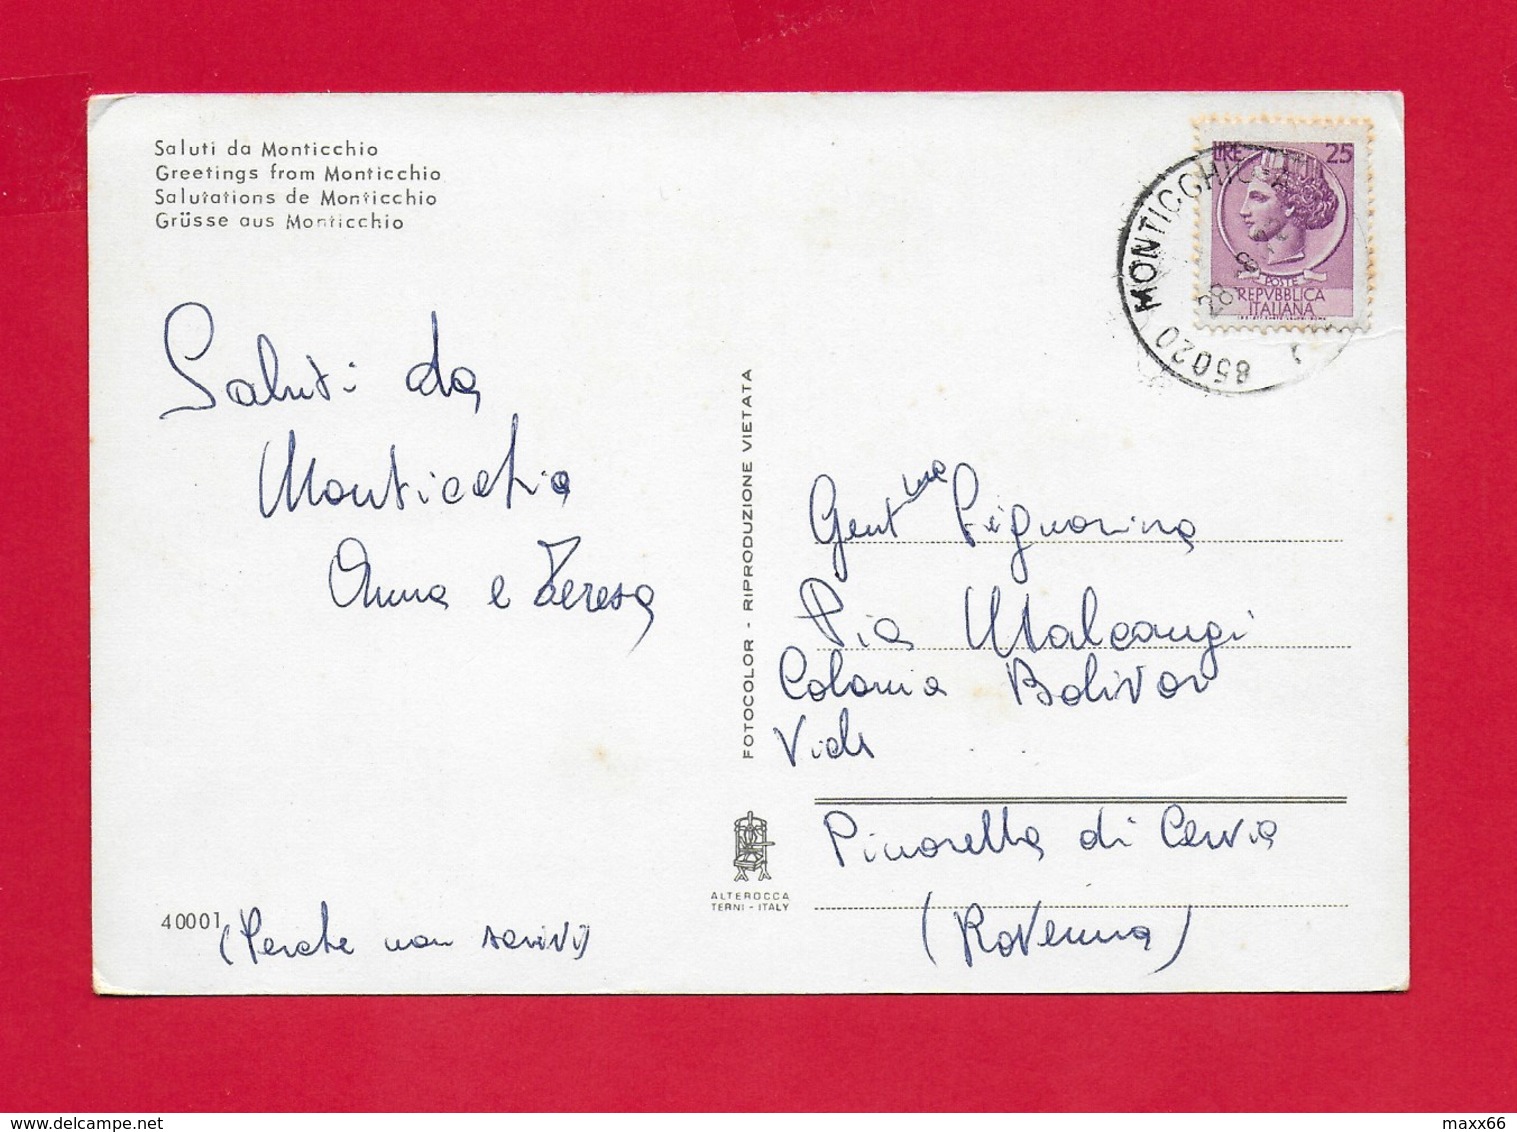 Saluti da Monticchio
Greetings from Monticchio
Salutations de Monticchio
Grüsse aus Monticchio
LIRE 25
POSTE
REPVBBLICA
ITALIANA
85020 MONTICCHIO
28 8
Saluti da
Monticchio
Anna e Teresa
(Perche non scrivi)
40001
FOTOCOLOR - RIPRODUZIONE VIETATA
ALTEROCCA
TERNI - ITALY
Gent.ma Signorina
Pia Malcangi
Colonia Bolivar
Viale
Pinarella di Cervia
(Ravenna)
delcampe.net
maxx66